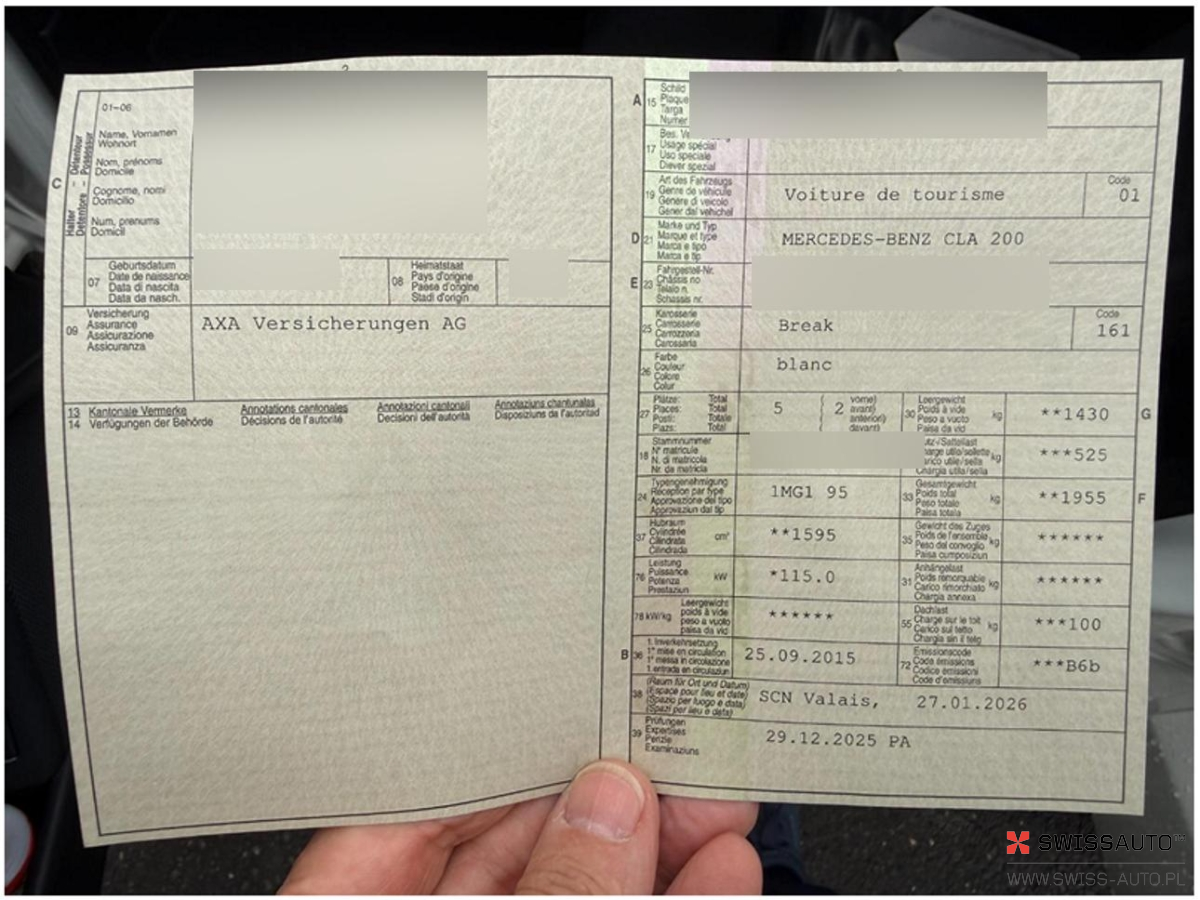 C
Halter - Détenteur
Detentore - Possessur
01-06
Name, Vornamen
Wohnort
Nom, prénoms
Domicile
Cognome, nomi
Domicilio
Num, prenums
Domicil
07
Geburtsdatum
Date de naissance
Data di nascita
Data da nasch.
08
Heimatstaat
Pays d'origine
Paese d'origine
Stadi d'origin
09
Versicherung
Assurance
Assicurazione
Assicuranza
AXA Versicherungen AG
13 Kantonale Vermerke
14 Verfügungen der Behörde
Annotations cantonales
Décisions de l'autorité
Annotazioni cantonali
Decisioni dell'autorità
Annotaziuns chantunalas
Disposiziuns da l'autoritad
A 15
Schild
Plaque
Targa
Numer
17
Bes. Ve
Usage spécial
Uso speciale
Diever spezial
19
Art des Fahrzeugs
Genre de véhicule
Genere di veicolo
Gener dal vehichel
Voiture de tourisme
Code
01
D 21
Marke und Typ
Marque et type
Marca e tipo
Marca e tip
MERCEDES-BENZ CLA 200
E 23
Fahrgestell-Nr.
Châssis no
Telaio n.
Schassis nr.
25
Karosserie
Carrosserie
Carrozzeria
Carossaria
Break
Code
161
26
Farbe
Couleur
Colore
Colur
blanc
27
Plätze: Total
Places: Total
Posti: Totale
Plazs: Total
5 ( 2 vorne)
avant)
anteriori)
davant)
30
Leergewicht
Poids à vide
Peso a vuoto
Paisa da vid
kg
**1430
G
18
Stammnummer
N° matricule
N. di matricola
Nr. da matricla
utz-/Sattellast
harge utile/sellette
arico utile/sella
Chargia utila/sella
kg
***525
24
Typengenehmigung
Réception par type
Approvazione del tipo
Approvaziun dal tip
1MG1 95
33
Gesamtgewicht
Poids total
Peso totale
Paisa totala
kg
**1955
F
37
Hubraum
Cylindrée
Cilindrata
Cilindrada
cm³
**1595
35
Gewicht des Zuges
Poids de l'ensemble
Peso del convoglio
Paisa cumposiziun
kg
******
76
Leistung
Puissance
Potenza
Prestaziun
kW
*115.0
31
Anhängelast
Poids remorquable
Carico rimorchiato
Chargia annexa
kg
******
78 kW/kg
Leergewicht
poids à vide
peso a vuoto
paisa da vid
******
55
Dachlast
Charge sur le toit
Carico sul tetto
Chargia sin il tetg
kg
***100
B 36
1. Inverkehrsetzung
1re mise en circulation
1a messa in circolazione
1. entrada en circulaziun
25.09.2015
72
Emissionscode
Code émissions
Codice emissioni
Code d'emissiuns
***B6b
38
(Raum für Ort und Datum)
(Espace pour lieu et date)
(Spazio per luogo e data)
(Spazi per lieu e data)
SCN Valais, 27.01.2026
39
Prüfungen
Expertises
Perizie
Examinaziuns
29.12.2025 PA
SWISSAUTO
WWW.SWISS-AUTO.PL